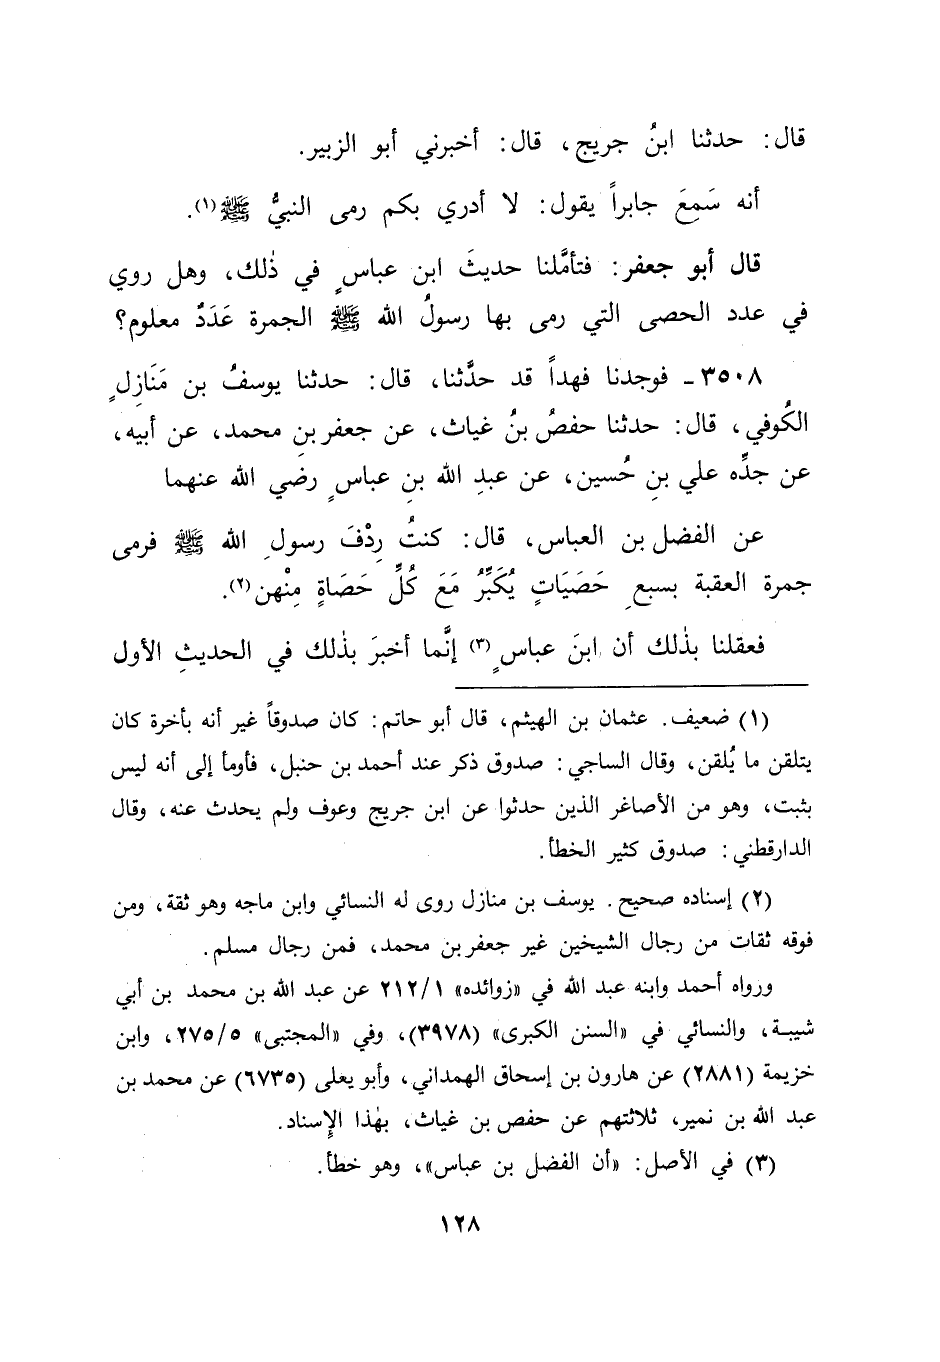 قال: حدثنا ابنُ جريج، قال: أخبرني أبو الزبير.
أنه سَمِعَ جابراً يقول: لا أدري بكم رمى النبيُّ ﷺ(١).
قال أبو جعفر: فتأمَّلنا حديثَ ابن عباسٍ في ذٰلك، وهل روي
في عدد الحصى التي رمى بها رسولُ الله ﷺ الجمرة عَدَدٌ معلوم؟
٣٥٠٨ ـ فوجدنا فهداً قد حدَّثنا، قال: حدثنا يوسفُ بن مَنَازِلٍ
الكُوفي، قال: حدثنا حفصُ بنُ غياث، عن جعفرِ بن محمد، عن أبيه،
عن جدِّه علي بنِ حُسين، عن عبدِ الله بنِ عباسٍ رضي الله عنهما
عن الفضل بن العباس، قال: كنتُ رِدْفَ رسولِ الله ﷺ فرمى
جمرة العقبة بسبعِ حَصَيَاتٍ يُكَبِّرُ مَعَ كُلِّ حَصَاةٍ مِنْهن(٢).
فعقلنا بذٰلك أن ابنَ عباسٍ(٣) إنَّما أخبرَ بذٰلك في الحديثِ الأول
(١) ضعيف. عثمان بن الهيثم، قال أبو حاتم: كان صدوقاً غير أنه بأخرة كان
يتلقن ما يُلقن، وقال الساجي: صدوق ذكر عند أحمد بن حنبل، فأومأ إلى أنه ليس
بثبت، وهو من الأصاغر الذين حدثوا عن ابن جريج وعوف ولم يحدث عنه، وقال
الدارقطني: صدوق كثير الخطأ.
(٢) إسناده صحيح. يوسف بن منازل روى له النسائي وابن ماجه وهو ثقة، ومن
فوقه ثقات من رجال الشيخين غير جعفر بن محمد، فمن رجال مسلم.
ورواه أحمد وابنه عبد الله في «زوائده» ٢١٢/١ عن عبد الله بن محمد بن أبي
شيبة، والنسائي في «السنن الكبرى» (٣٩٧٨)، وفي «المجتبى» ٢٧٥/٥، وابن
خزيمة (٢٨٨١) عن هارون بن إسحاق الهمداني، وأبو يعلى (٦٧٣٥) عن محمد بن
عبد الله بن نمير، ثلاثتهم عن حفص بن غياث، بهٰذا الإِسناد.
(٣) في الأصل: «أن الفضل بن عباس»، وهو خطأ.
١٢٨